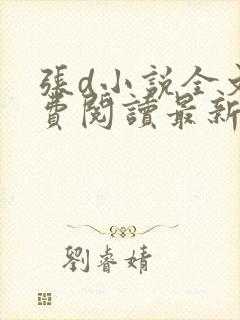 張d小說全文
費閱讀最新
劉睿婧